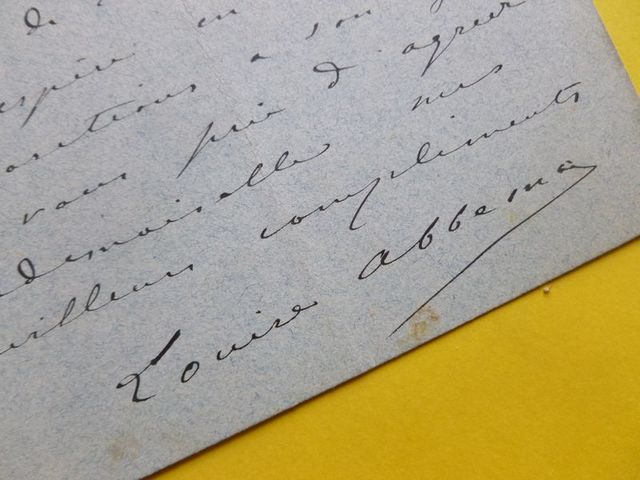 de
espère en
ositions a son
vous prie d'agréer
demoiselle mes
meilleurs compliments
Louise Abbema